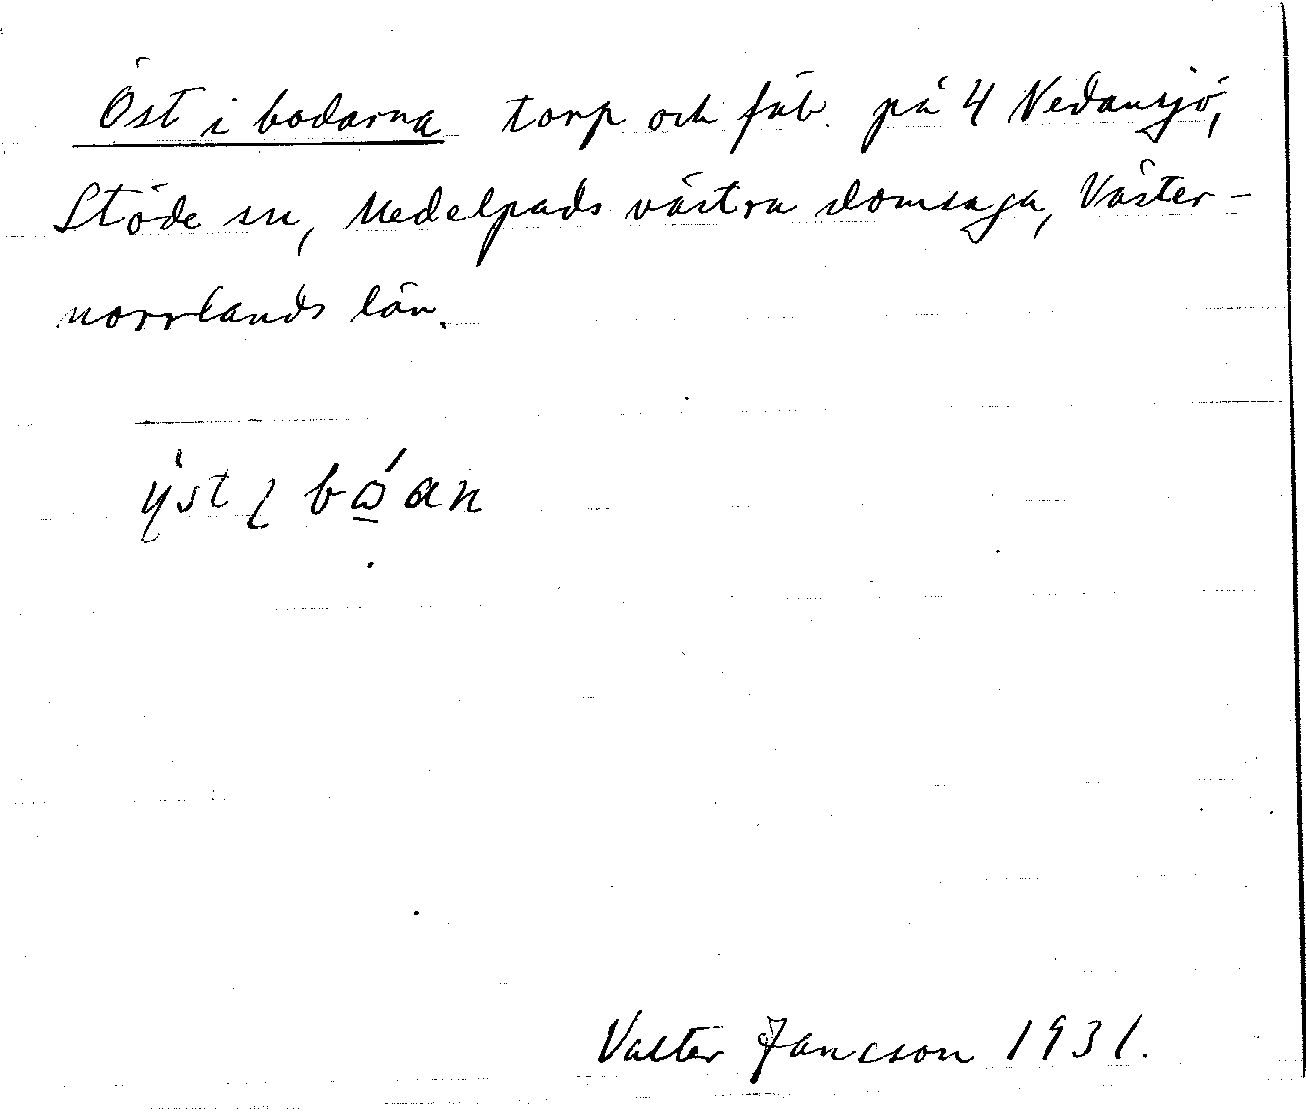 Öst i bodarna torp och fäb. på 4 Nedansjö,
Stöde sn, Medelpads västra domsaga, Väster-
norrlands län.
ýst ɩ bώ̲an
Valter Jansson 1931.